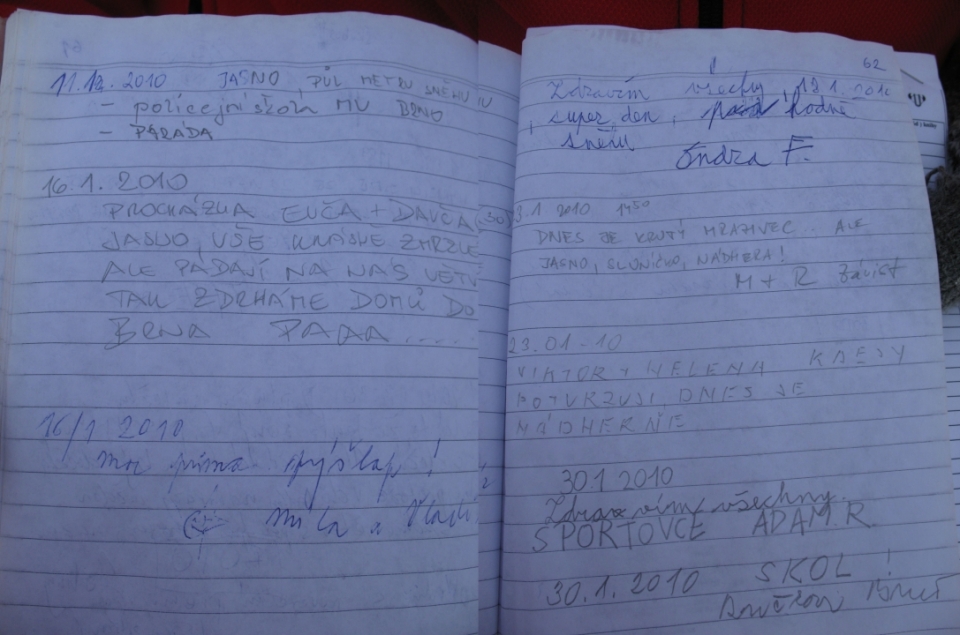 11.12.2010 JASNO, PŮL METRU SNĚHU
- policejní škola MV BRNO
- PARÁDA
16.1. 2010
PROCHÁZKA EVČA + DAVČA
JASNO, VŠE KRÁSNĚ ZMRZLÉ
ALE PADAJÍ NA NÁS VĚTV
TAK ZDRHÁME DOMŮ DO
BRNA PAAA.....
16/1 2010
moc prima výšlap!
Míla a Vladi
62
Zdravím všechny, 19.1.2010
super den, hodně
sněhu
Ondra F.
3.1 2010 14⁵⁰
DNES JE KRUTÝ MRAZIVEC... ALE
JASNO, SLUNÍČKO, NÁDHERA!
M + R
23.01-10
VIKTOR + HELENA
POTVRZUJI, DNES JE
NÁDHERNĚ
30 1 2010
Zdravím všechny
SPORTOVCE ADAM. R.
30.1.2010 SKOL!